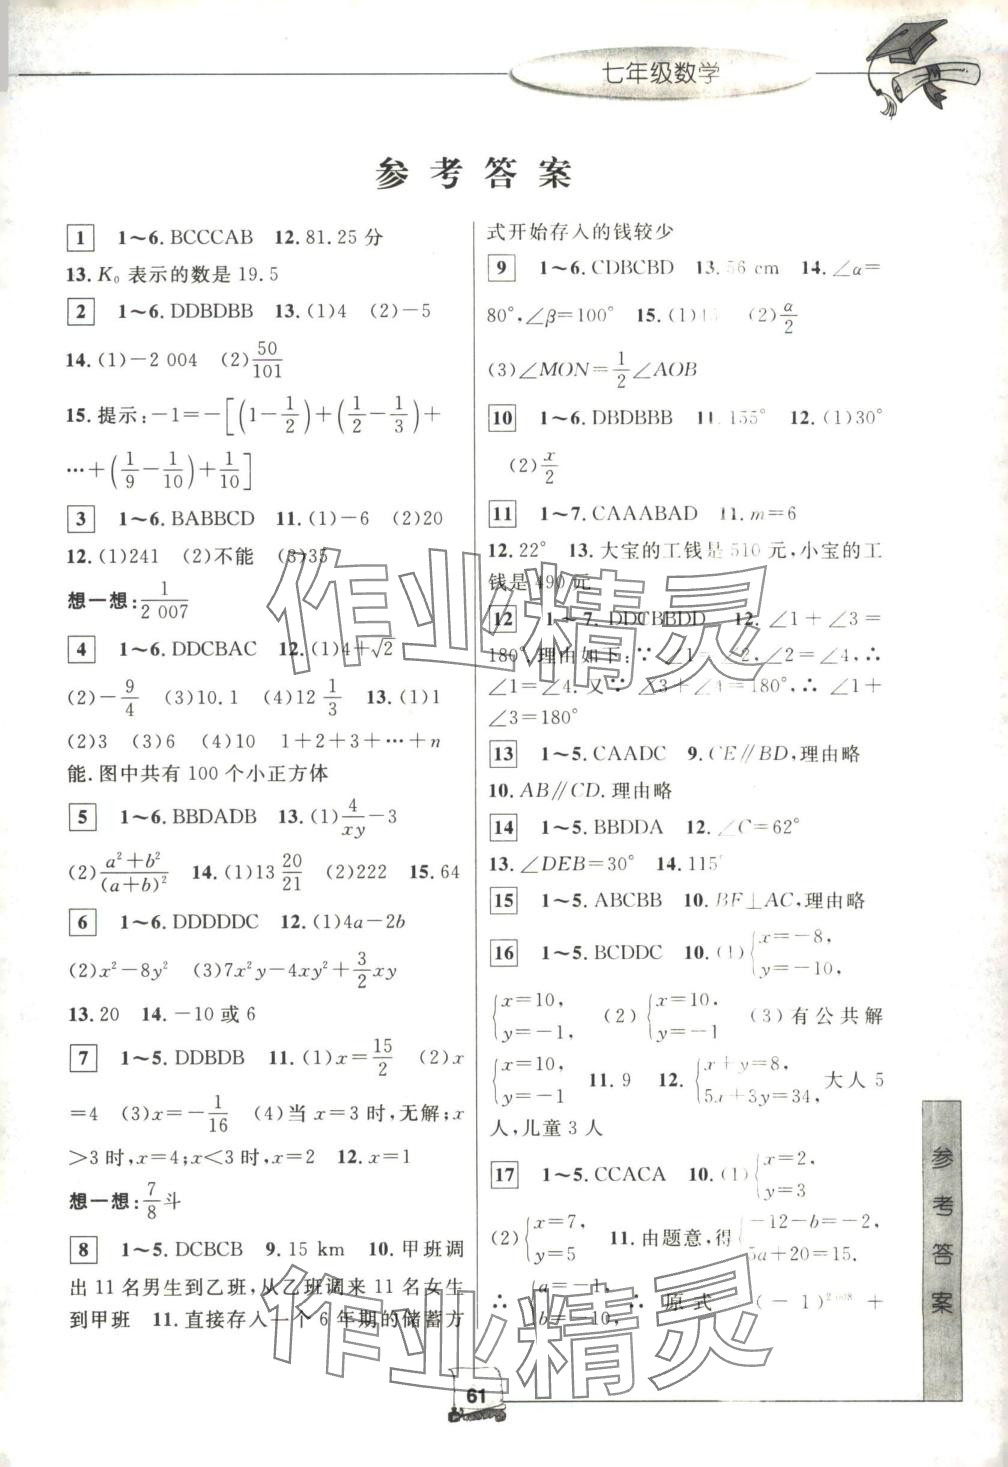 七年级数学
参考答案
1 1～6. BCCCAB 12. 81.25 分
13. K₀ 表示的数是 19.5
2 1～6. DDBDBB 13. (1)4 (2)－5
14. (1)－2 004 (2)50/101
15. 提示:－1=－[(1－1/2)＋(1/2－1/3)＋
…＋(1/9－1/10)＋1/10]
3 1～6. BABBCD 11. (1)－6 (2)20
12. (1)241 (2)不能 (3)35
想一想:1/2 007
4 1～6. DDCBAC 12. (1)4＋√2
(2)－9/4 (3)10.1 (4)12 1/3 13. (1)1
(2)3 (3)6 (4)10 1＋2＋3＋…＋n
能. 图中共有 100 个小正方体
5 1～6. BBDADB 13. (1)4/xy－3
(2)(a²＋b²)/(a＋b)² 14. (1)13 20/21 (2)222 15. 64
6 1～6. DDDDDC 12. (1)4a－2b
(2)x²－8y² (3)7x²y－4xy²＋3/2xy
13. 20 14. －10 或 6
7 1～5. DDBDB 11. (1)x=15/2 (2)x
=4 (3)x=－1/16 (4)当 x=3 时,无解;x
>3 时,x=4;x<3 时,x=2 12. x=1
想一想:7/8斗
8 1～5. DCBCB 9. 15 km 10. 甲班调
出 11 名男生到乙班,从乙班调来 11 名女生
到甲班 11. 直接存入一个 6 年期的储蓄方
式开始存入的钱较少
9 1～6. CDBCBD 13. 56 cm 14. ∠α=
80°,∠β=100° 15. (1) (2)α/2
(3)∠MON=1/2∠AOB
10 1～6. DBDBBB 11. 155° 12. (1)30°
(2)x/2
11 1～7. CAAABAD 11. m=6
12. 22° 13. 大宝的工钱是 510 元,小宝的工
钱是 490 元
12 1～7. DDCBBDD 12. ∠1＋∠3=
180°. 理由如下:∵ ∠1=∠2,∠2=∠4,∴
∠1=∠4. 又∵ ∠3＋∠4=180°,∴ ∠1＋
∠3=180°
13 1～5. CAADC 9. CE∥BD,理由略
10. AB∥CD. 理由略
14 1～5. BBDDA 12. ∠C=62°
13. ∠DEB=30° 14. 115°
15 1～5. ABCBB 10. BF⊥AC,理由略
16 1～5. BCDDC 10. (1){x=－8, y=－10,
{x=10, y=－1, (2){x=10, y=－1 (3)有公共解
{x=10, y=－1 11. 9 12. {x＋y=8, 5x＋3y=34, 大人 5
人,儿童 3 人
17 1～5. CCACA 10. (1){x=2, y=3
(2){x=7, y=5 11. 由题意,得{－12－b=－2, 5a＋20=15.
∴ {a=－1, b=－10, ∴ 原式 (－1)²⁰⁰⁸＋
参考答案
61
作业精灵
作业精灵